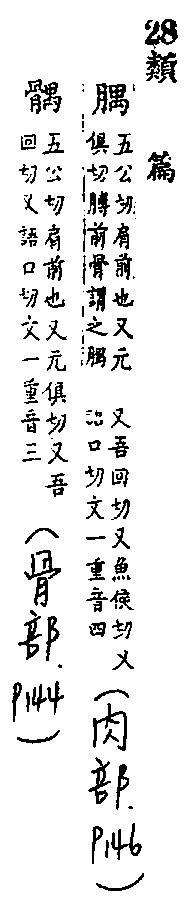 28類篇
腢 五公切肩前也又元
俱切膊前骨謂之腢
又吾回切又魚侯切又
語口切文一重音四
(肉部. P146)
髃 五公切肩前也又元俱切又吾
回切又語口切文一重音三
(骨部. P144)